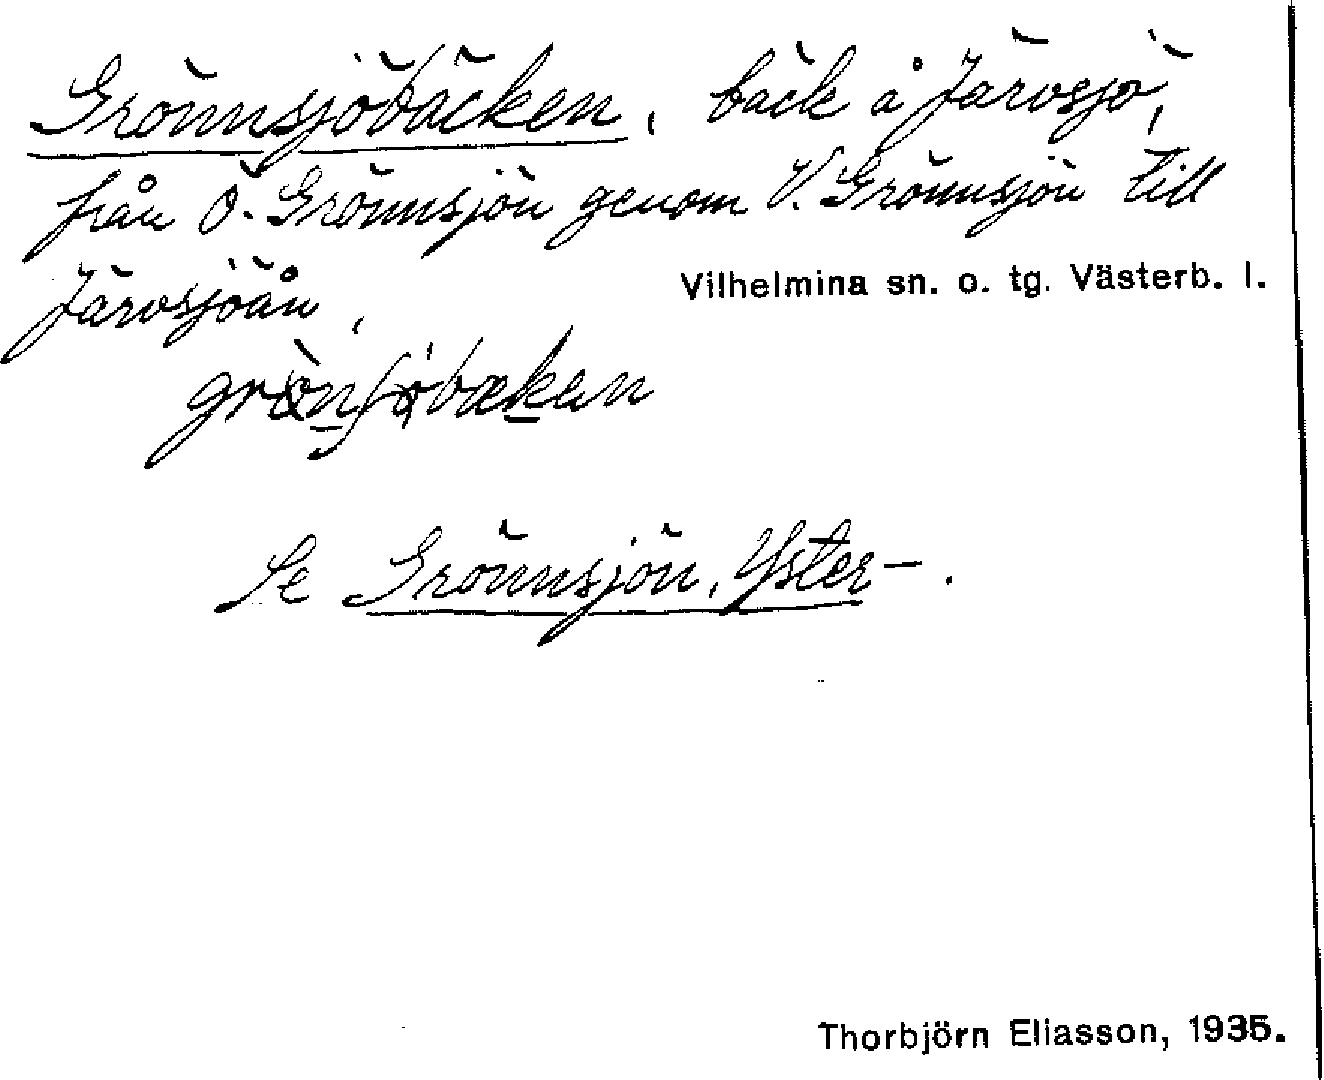 Grönnsjöbäcken, bäck å Järvsjö,
från Ö. Grönnsjön genom V. Grönnsjön till
Järvsjöån,
Vilhelmina sn. o. tg. Västerb. l.
Se Grönnsjön, Yster-.
Thorbjörn Eliasson, 1935.